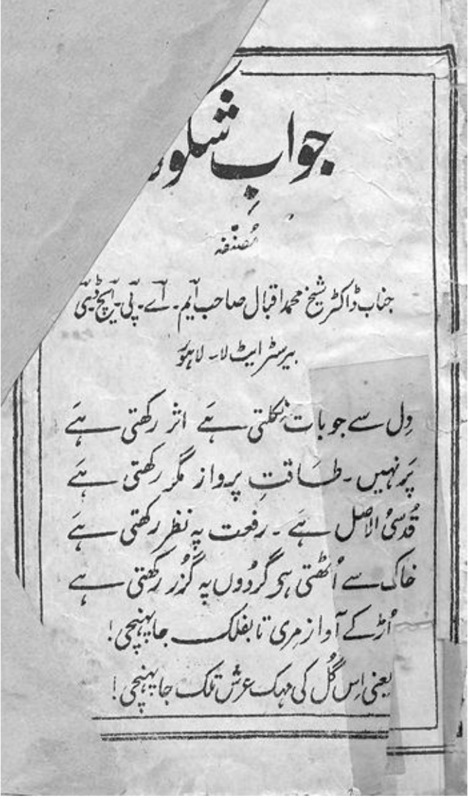 جوابِ شکو
مُصنّفہ
جناب ڈاکٹر شیخ محمد اقبال صاحب ایم۔ اے۔ پی۔ ایچ ڈی
بیرسٹر ایٹ لا۔ لاہور
دِل سے جو بات نِکلتی ہے اثر رکھتی ہے
پَر نہیں۔ طاقتِ پرواز مگر رکھتی ہے
قُدسیُ الاصل ہے۔ رفعت پہ نظر رکھتی ہے
خاک سے اُٹھتی ہی گردُوں پہ گُذر رکھتی ہے
اُڑ کے آواز مری تا بفلک جا پہنچی!
یعنی اِس گُل کی مہک عرش تلک جا پہنچی!